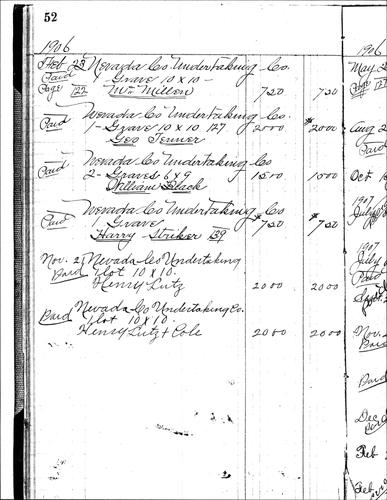 52
1906
1906
Feb 28 Nevada Co Undertaking Co.
Paid 1 - Grave 10 x 10 -
Page 122 Mr. Millen 7 20 7 20
Nevada Co Undertaking Co.
Paid 1 - Grave 10 x 10 127 20 00 $20 00
Geo Jenner
Nevada Co Undertaking Co
Paid 2 - Graves 6 x 9 15 00 15 00
William Black
Nevada Co Undertaking Co
Paid 1 Grave $7 20 $7 20
Harry Striker 139
Nov. 21 Nevada Co Undertaking
Paid 1 lot 10 x 10.
Henry Lutz 20 00 20 00
Nevada Co Undertaking Co.
Paid 1 lot 10 x 10.
Henry Lutz + Cole 20 00 20 00
May 2
Aug 2
Paid
Oct 1
1907
July
1907
July
Paid
Nov.
Paid
Paid
Dec
Feb
Feb.